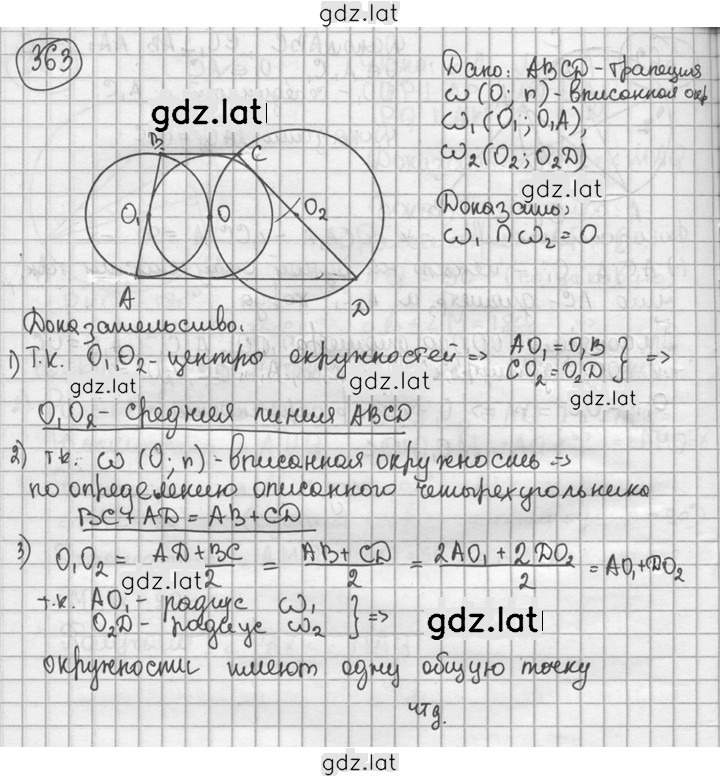 gdz.lat
363
Дано: ABCD - трапеция
ω (O; r) - вписанная окр
gdz.lat
ω₁ (O₁; O₁A),
ω₂ (O₂; O₂D)
gdz.lat
Доказать:
ω₁ ∩ ω₂ = O
B C
O₁ O O₂
A D
Доказательство:
1) Т.к. O₁, O₂ - центро окружностей ⇒ AO₁ = O₁B } ⇒
CO₂ = O₂D
gdz.lat
gdz.lat
O₁O₂ - средняя линия ABCD
2) т.к. ω (O; r) - вписанная окружность ⇒
по определению описанного четырехугольника
BC + AD = AB + CD
3) O₁O₂ = (AD + BC)/2 = (AB + CD)/2 = (2AO₁ + 2DO₂)/2 = AO₁ + DO₂
gdz.lat
т.к. AO₁ - радиус ω₁ } ⇒
O₂D - радиус ω₂
gdz.lat
окружности имеют одну общую точку
чтд.
gdz.lat